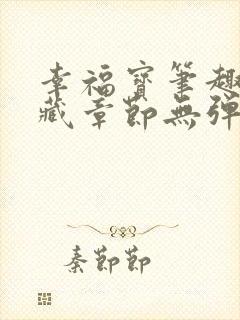 幸福寶笔趣
藏章節無弹
秦節節